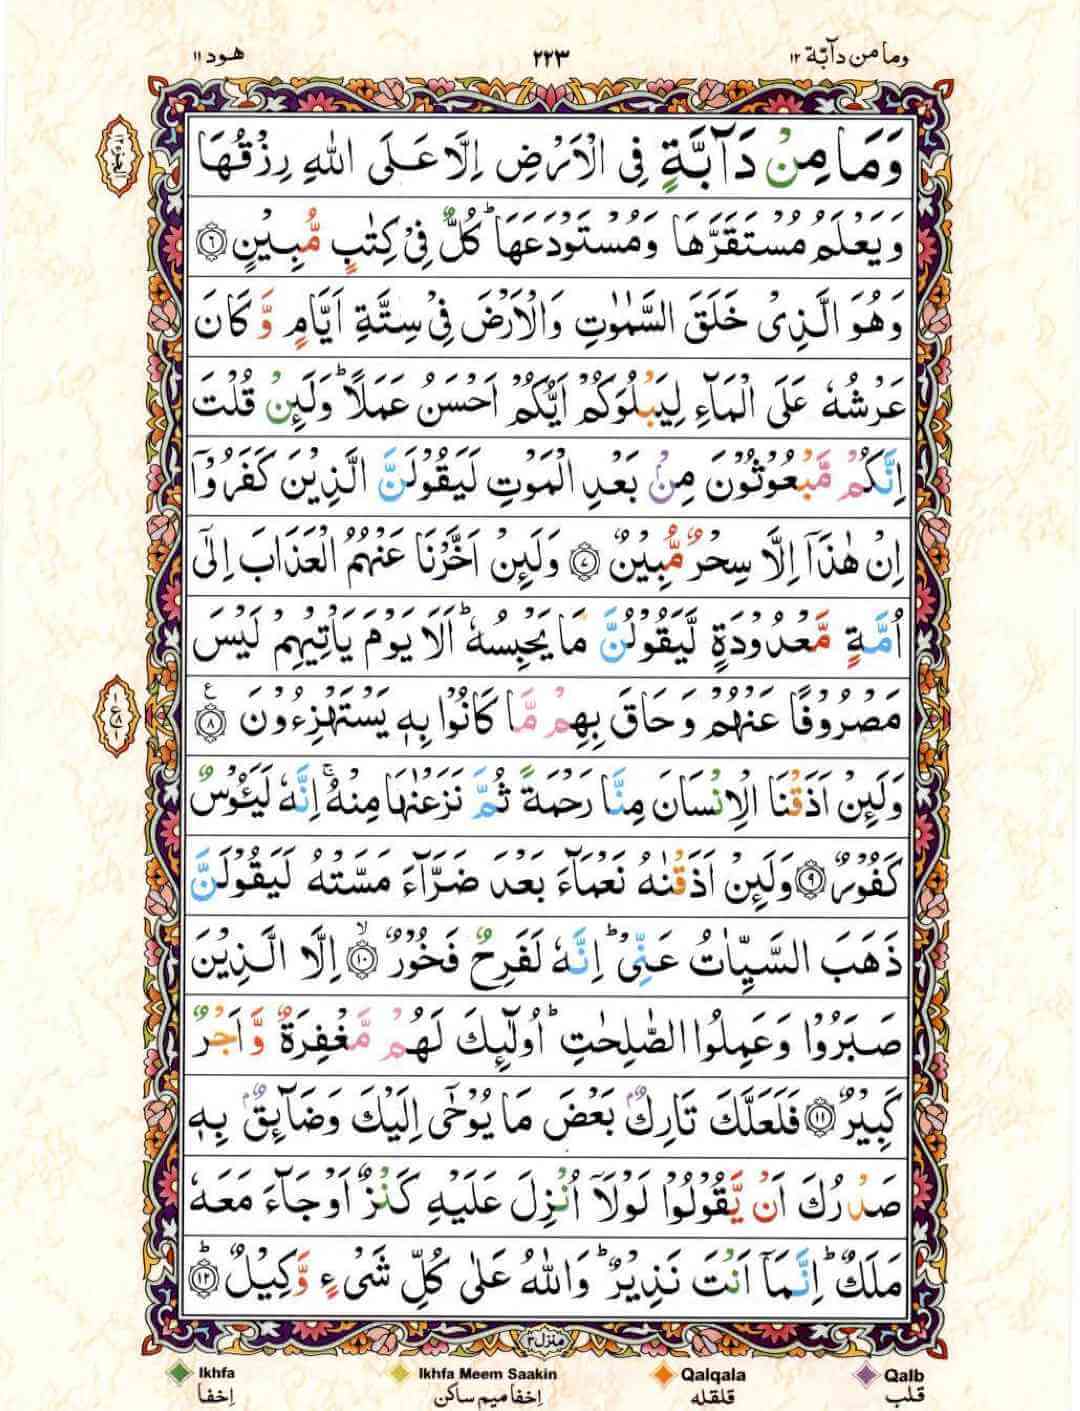 وما من دآبّة ١٢
٢٢٣
هود ١١
وَمَا مِنْ دَآبَّةٍ فِی الْاَرْضِ اِلَّا عَلَی اللّٰهِ رِزْقُهَا
وَیَعْلَمُ مُسْتَقَرَّهَا وَمُسْتَوْدَعَهَا ؕ كُلٌّ فِیْ كِتٰبٍ مُّبِیْنٍ ۝۶
وَهُوَ الَّذِیْ خَلَقَ السَّمٰوٰتِ وَالْاَرْضَ فِیْ سِتَّةِ اَیَّامٍ وَّكَانَ
عَرْشُهٗ عَلَی الْمَآءِ لِیَبْلُوَكُمْ اَیُّكُمْ اَحْسَنُ عَمَلًا ؕ وَلَىِٕنْ قُلْتَ
اِنَّكُمْ مَّبْعُوْثُوْنَ مِنْۢ بَعْدِ الْمَوْتِ لَیَقُوْلَنَّ الَّذِیْنَ كَفَرُوْۤا
اِنْ هٰذَاۤ اِلَّا سِحْرٌ مُّبِیْنٌ ۝۷ وَلَىِٕنْ اَخَّرْنَا عَنْهُمُ الْعَذَابَ اِلٰۤی
اُمَّةٍ مَّعْدُوْدَةٍ لَّیَقُوْلُنَّ مَا یَحْبِسُهٗ ؕ اَلَا یَوْمَ یَاْتِیْهِمْ لَیْسَ
مَصْرُوْفًا عَنْهُمْ وَحَاقَ بِهِمْ مَّا كَانُوْا بِهٖ یَسْتَهْزِءُوْنَ ۝۸ ع
وَلَىِٕنْ اَذَقْنَا الْاِنْسَانَ مِنَّا رَحْمَةً ثُمَّ نَزَعْنٰهَا مِنْهُ ۚ اِنَّهٗ لَیَـُٔوْسٌ
كَفُوْرٌ ۝۹ وَلَىِٕنْ اَذَقْنٰهُ نَعْمَآءَ بَعْدَ ضَرَّآءَ مَسَّتْهُ لَیَقُوْلَنَّ
ذَهَبَ السَّیِّاٰتُ عَنِّیْ ؕ اِنَّهٗ لَفَرِحٌ فَخُوْرٌ ۝۱۰ۙ اِلَّا الَّذِیْنَ
صَبَرُوْا وَعَمِلُوا الصّٰلِحٰتِ ؕ اُولٰٓىِٕكَ لَهُمْ مَّغْفِرَةٌ وَّاَجْرٌ
كَبِیْرٌ ۝۱۱ فَلَعَلَّكَ تَارِكٌۢ بَعْضَ مَا یُوْحٰۤی اِلَیْكَ وَضَآىِٕقٌۢ بِهٖ
صَدْرُكَ اَنْ یَّقُوْلُوْا لَوْلَاۤ اُنْزِلَ عَلَیْهِ كَنْزٌ اَوْ جَآءَ مَعَهٗ
مَلَكٌ ؕ اِنَّمَاۤ اَنْتَ نَذِیْرٌ ؕ وَاللّٰهُ عَلٰی كُلِّ شَیْءٍ وَّكِیْلٌ ۝۱۲ؕ
منزل ۳
Ikhfa
Ikhfa Meem Saakin
Qalqala
Qalb
إخفا
إخفا میم ساکن
قلقله
قلب